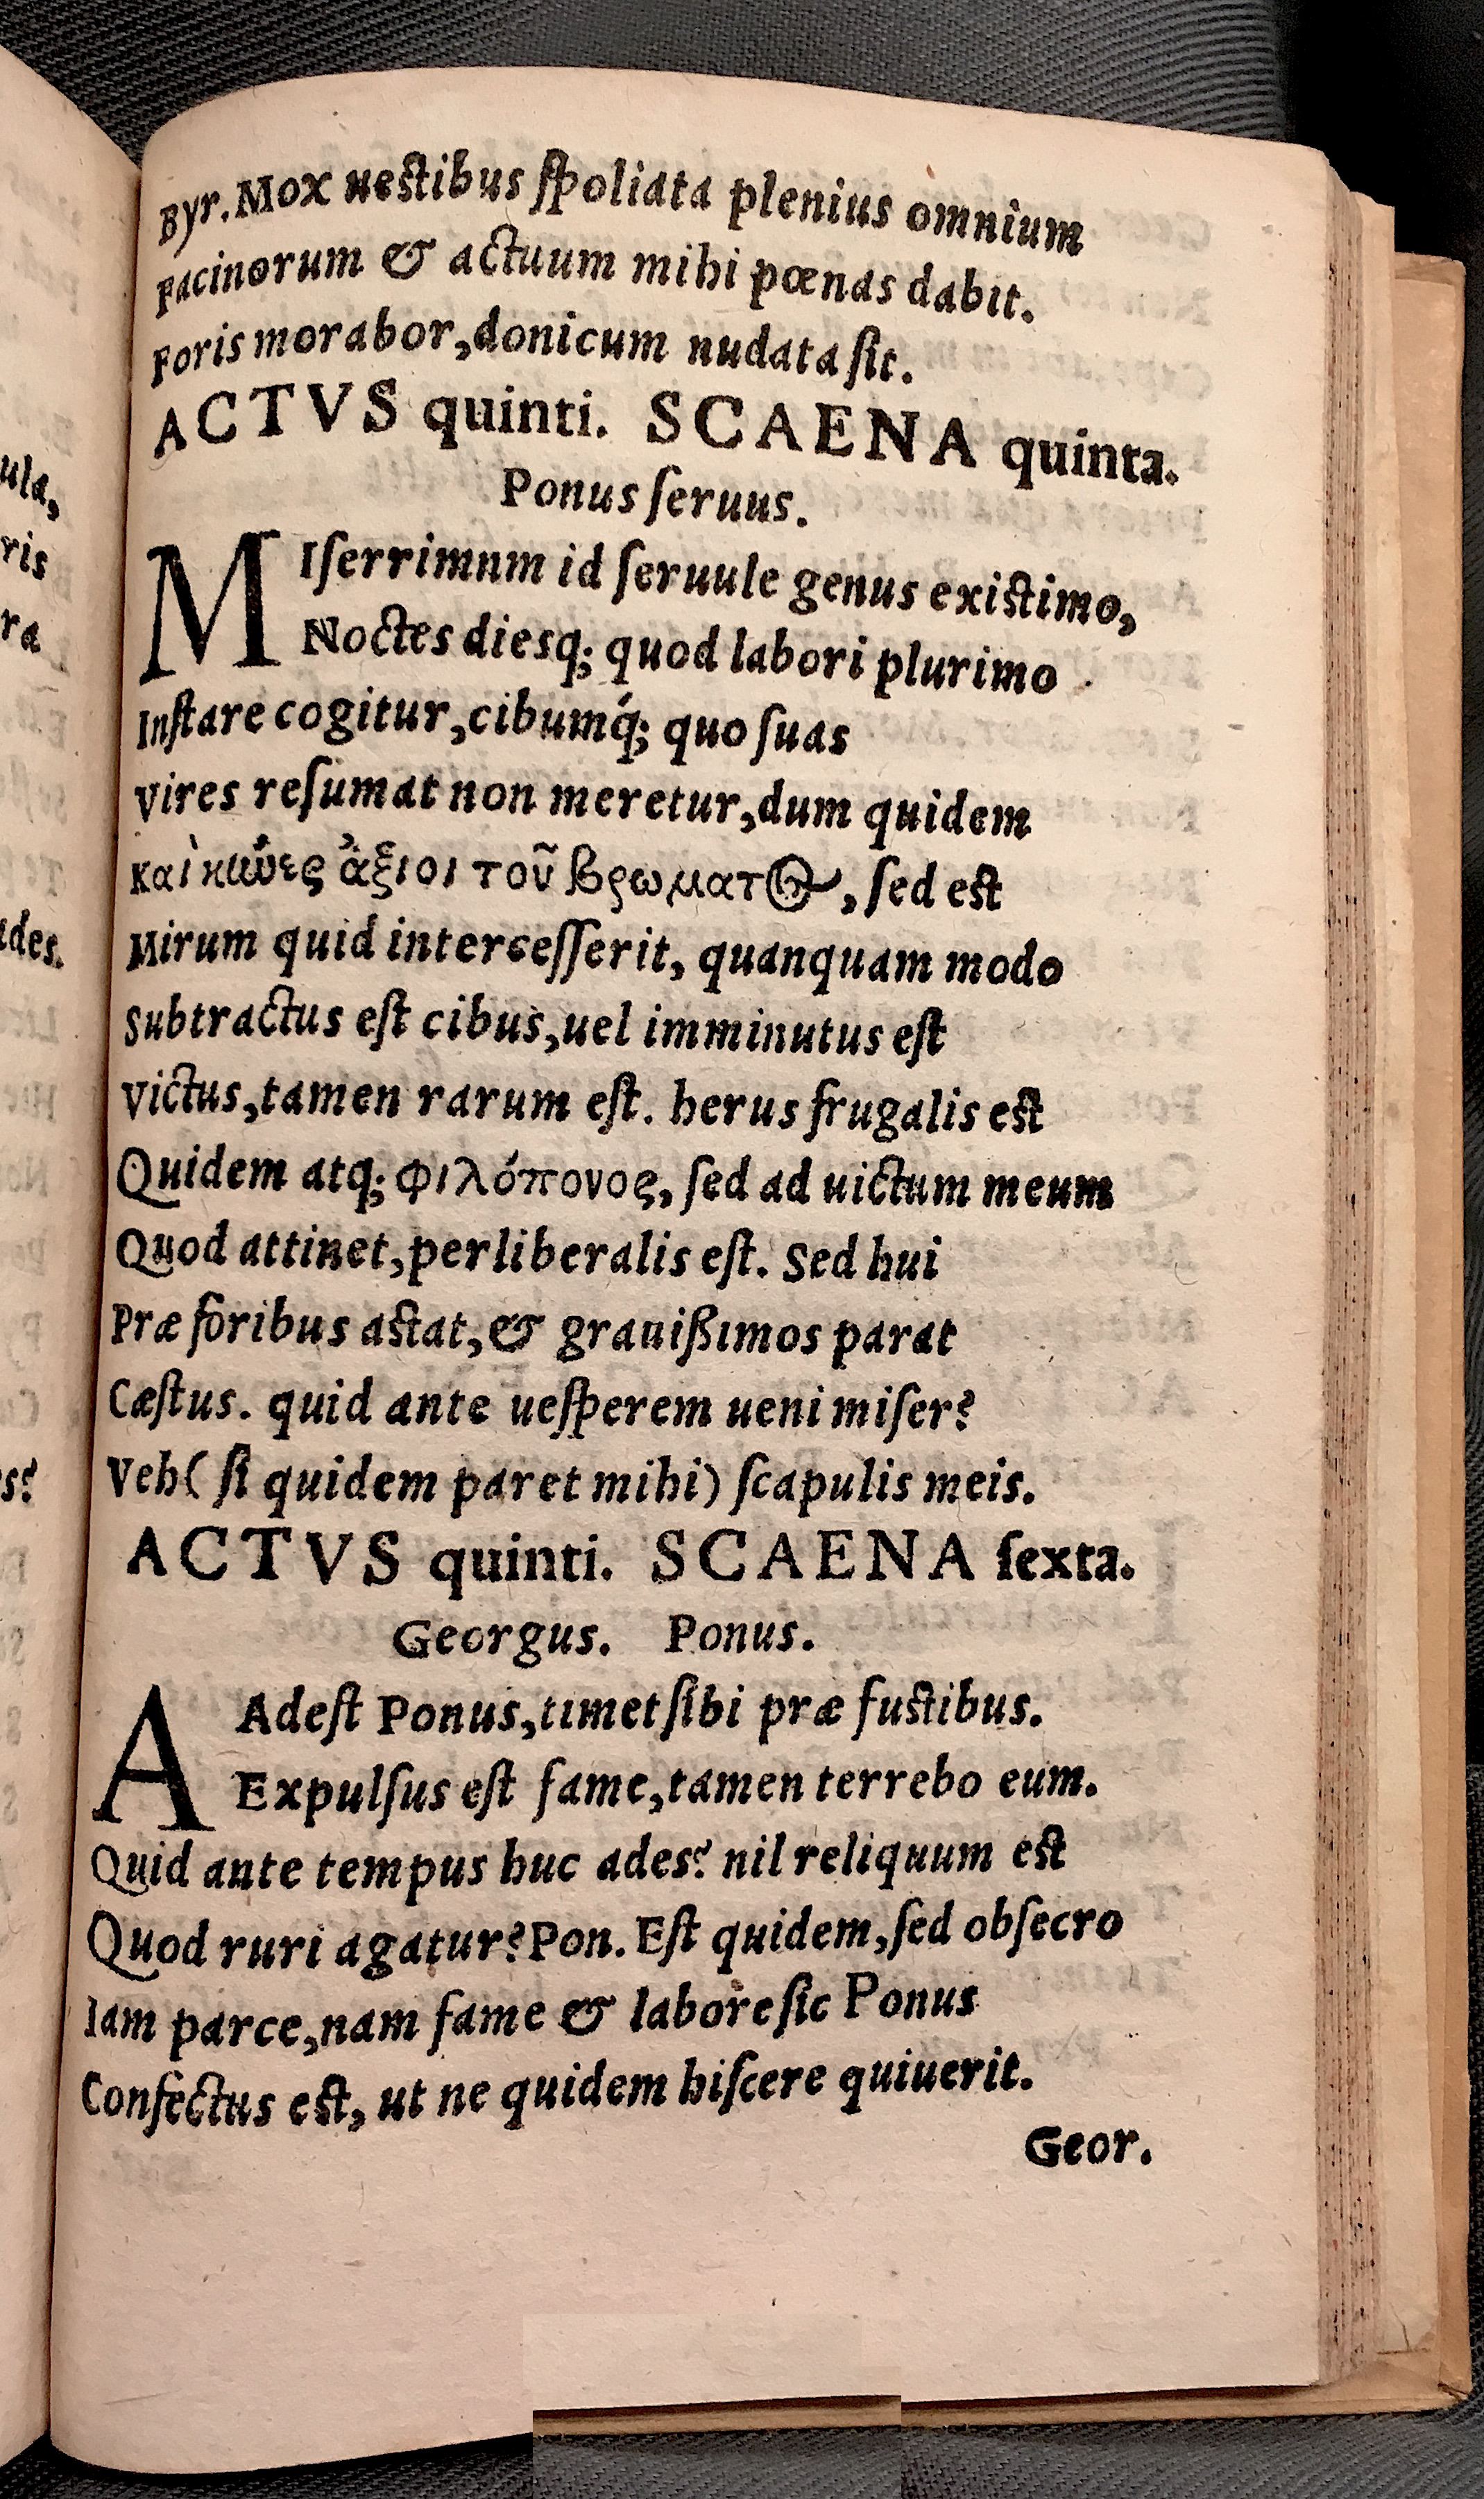 Byr. Mox ueſtibus ſpoliata plenius omnium
Facinorum & actuum mihi pœnas dabit.
Foris morabor, donicum nudata ſit.
ACTVS quinti. SCAENA quinta.
Ponus ſeruus.
MIſerrimnm id ſeruule genus exiſtimo,
Noctes diesq; quod labori plurimo
Inſtare cogitur, cibumq́; quo ſuas
Vires reſumat non meretur, dum quidem
καὶ κύνες ἄξιοι τοῦ βρωματος, ſed eſt
Mirum quid interceſſerit, quanquam modo
Subtractus eſt cibus, uel imminutus eſt
Victus, tamen rarum eſt. herus frugalis eſt
Quidem atq; φιλόπονος, ſed ad uictum meum
Quod attinet, perliberalis eſt. Sed hui
Præ foribus aſtat, & grauißimos parat
Cæſtus. quid ante ueſperem ueni miſer?
Veh( ſi quidem paret mihi) ſcapulis meis.
ACTVS quinti. SCAENA ſexta.
Georgus. Ponus.
AAdeſt Ponus, timet ſibi præ fuſtibus.
Expulſus eſt fame, tamen terrebo eum.
Quid ante tempus huc ades? nil reliquum eſt
Quod ruri agatur? Pon. Eſt quidem, ſed obſecro
Iam parce, nam fame & labore ſic Ponus
Confectus eſt, ut ne quidem hiſcere quiuerit.
Geor.
ula,
ris
ra
ades.
s?